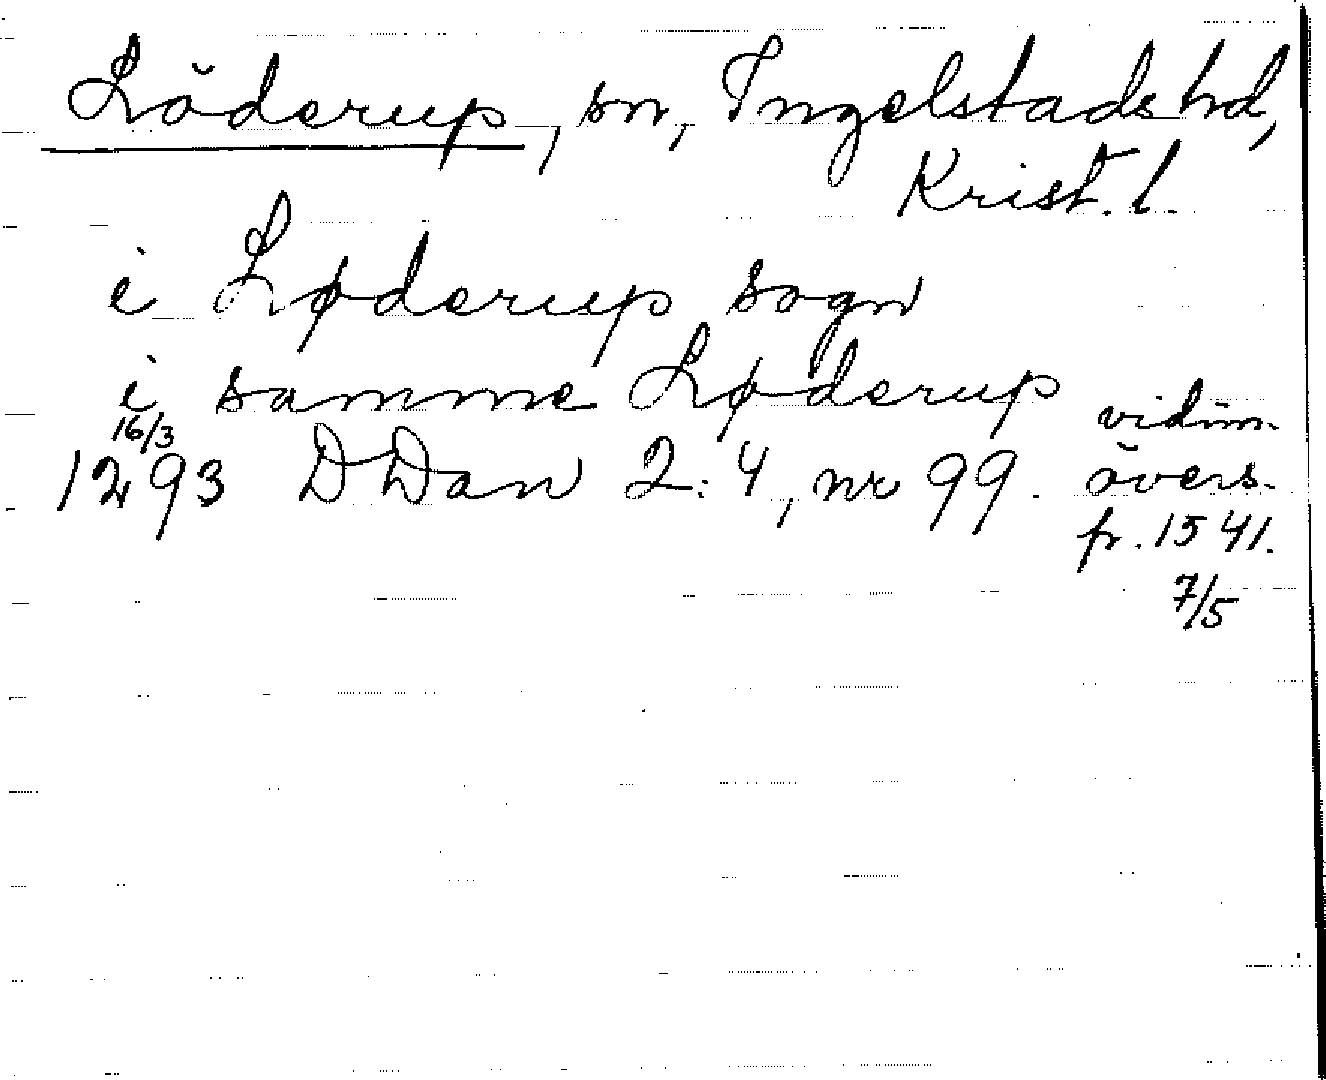 Löderup, sn, Ingelstads hd,
Krist. l.
i Løderup sogn
i samme Løderup
16/3
1293 DDan 2:4, nr 99.
vidim.
övers.
fr. 1541.
7/5